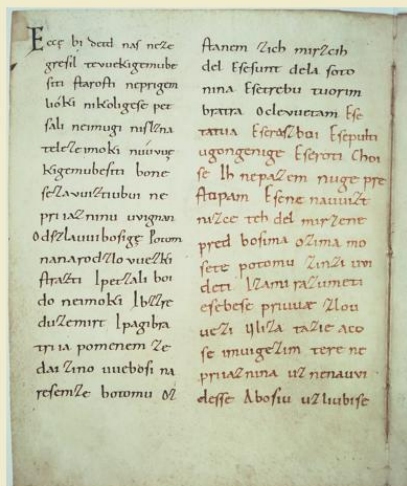 Eccę bi detd naſ neze
greſil tevuekigemube
ſiti ſtaroſti neprigem
lióki nikoligeſe pet
ſali neimugi niſlzna
teleſeimoki núúvuę
kigemubeſiti bone
ſezavuiztiubui ne
priiazninu uvignan
Odſzlauuiboſigę Potom
nanarodzlovuezki
ſtrazti Ipetzali boi
do neimoki Ibzzre
duzemirt Ipagibra
triia pomenem ze
dai zino uueboſi na
reſemze botomu oz
ſtanem zich mirzcih
del Eſeſunt dela ſoto
nina Eſetrebu tuorim
bratra Oclevuetam Eſe
tatua Eſeraſzboi Eſepulti
ugongenige Eſeroti Choi
ſe Ih nepazem nuge pre
ſtopam Eſene nauuizt
nizce teh del mirzene
pred boſima ozima mo
ſete potomu zinzi uvi
deti Izami razumeti
eſebeſe priuuae zlou
uezi uliza tazie aco
ſe imuigezim tere ne
priiaznina uznenauvi
deſſe Aboſiu uzliubiſe